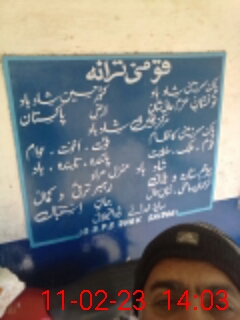 قومی ترانہ
پاک سرزمین شاد باد کشور حسین شاد باد
تو نشان عزم عالیشان ارض پاکستان
مرکز یقین شاد باد
پاک سرزمین کا نظام قوت اخوت عوام
قوم ، ملک ، سلطنت پائندہ ، تابندہ ، باد
شاد باد منزل مراد
پرچم ستارہ و ہلال رہبر ترقی و کمال
جان استقبال
سایۂ خدائے ذوالجلال
11-02-23 14:03